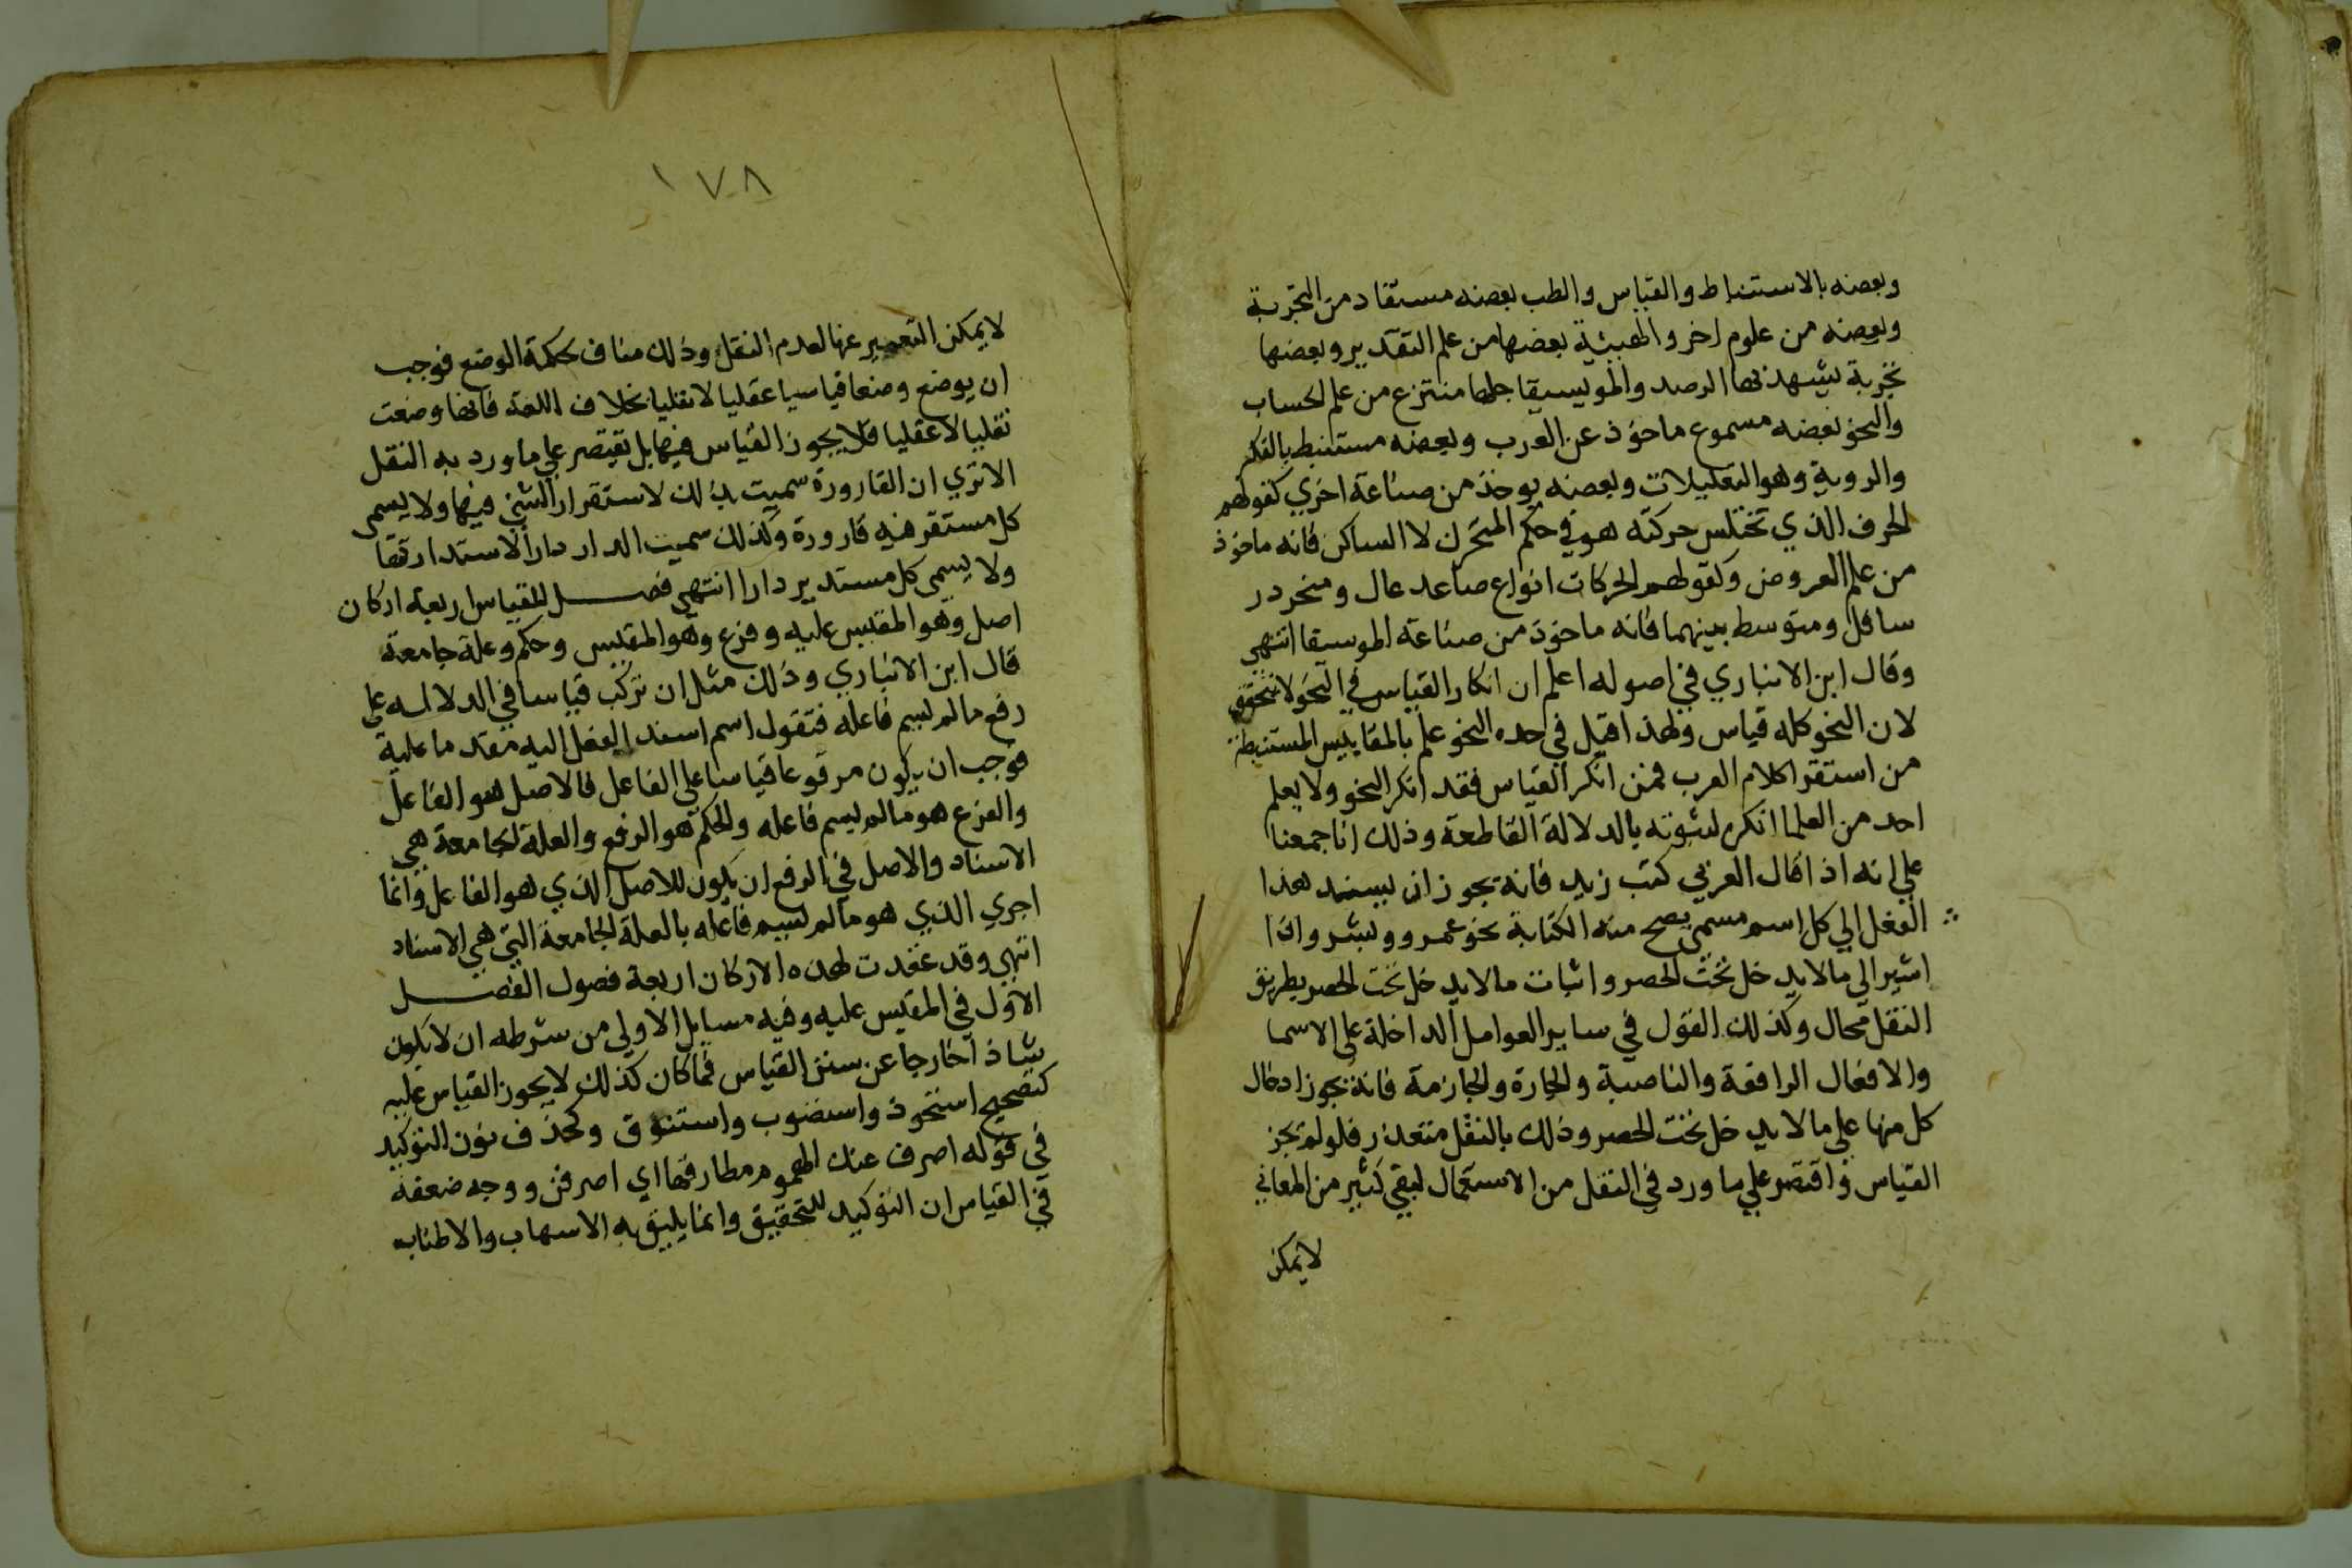 وبعضه بالاستنباط والقياس والطب بعضه مستفاد من التجربة
وبعضه من علوم اخر والهيئية بعضها من علم التقدير وبعضها
تجربة يشهد بها الرصد والمويسيقا جلها منتزع من علم الحساب
والنحو بعضه مسموع ماخوذ عن العرب وبعضه مستنبط بالفكر
والروية وهو التعليلات وبعضه يوخذ من صناعة اخري كقولهم
الحرف الذي تختلس حركته هو في حكم المتحرك لا الساكن فانه ماخوذ
من علم العروض وكقولهم الحركات انواع صاعد عال ومنحدر
سافل ومتوسط بينهما فانه ماخوذ من صناعة الموسيقا انتهي
وقال ابن الانباري في اصوله اعلم ان انكار القياس في النحو لا يتحقق
لان النحو كله قياس ولهذا قيل في حده النحو علم بالمقاييس المستنبطة
من استقرا كلام العرب فمن انكر القياس فقد انكر النحو ولا يعلم
احد من العلما انكره لثبوته بالدلالة القاطعة وذلك انا جمعنا
علي انه اذا قال العربي كتب زيد فانه يجوز ان يسند هذا
الفعل الي كل اسم مسمي يصح منه الكتابة نحو عمرو وبشر واذا
اشير الي ما لا يدخل تحت الحصر واثبات ما لا يدخل تحت الحصر بطريق
النقل محال وكذلك القول في ساير العوامل الداخلة على الاسما
والافعال الرافعة والناصبة والجارة والجازمة فانه يجوز ادخال
كل منها علي ما لا يدخل تحت الحصر وذلك بالنقل متعذر فلو لم يجز
القياس واقتصر علي ما ورد في النقل من الاستعمال لبقي كثير من المعاني
لا يمكن
١٧٨
لا يمكن التعبير عنها لعدم النقل وذلك مناف لحكمة الوضع فوجب
ان يوضع وضعا قياسيا عقليا لا نقليا بخلاف اللغة فانها وضعت
نقليا لا عقليا فلا يجوز القياس فيها بل يقتصر علي ما ورد به النقل
الا تري ان القارورة سميت بذلك لاستقرار الشي فيها ولا يسمي
كل مستقر فيه قارورة وكذلك سميت الدار دارا لاستدارتها
ولا يسمي كل مستدير دارا انتهي فصل للقياس اربعة اركان
اصل وهو المقيس عليه وفرع وهو المقيس وحكم وعلة جامعة
قال ابن الانباري وذلك مثل ان تركب قياسا في الدلالة علي
رفع ما لم يسم فاعله فتقول اسم اسند الفعل اليه مقدما عليه
فوجب ان يكون مرفوعا قياسا علي الفاعل فالاصل هو الفاعل
والفرع هو ما لم يسم فاعله والحكم هو الرفع والعلة الجامعة هي
الاسناد والاصل في الرفع ان يكون للاصل الذي هو الفاعل وانما
اجري الذي هو ما لم يسم فاعله بالعلة الجامعة التي هي الاسناد
انتهي وقد عقدت لهذه الاركان اربعة فصول الفصل
الاول في المقيس عليه وفيه مسايل الاولي من شرطه ان لا يكون
شاذا خارجا عن سنن القياس فما كان كذلك لا يجوز القياس عليه
كتصحيح استحوذ واستصوب واستنوق وكحذف نون التوكيد
في قوله اصرف عنك الهموم طارقها اي اصرفن ووجه ضعفه
في القياس ان التوكيد للتحقيق وانما يليق به الاسهاب والاطناب